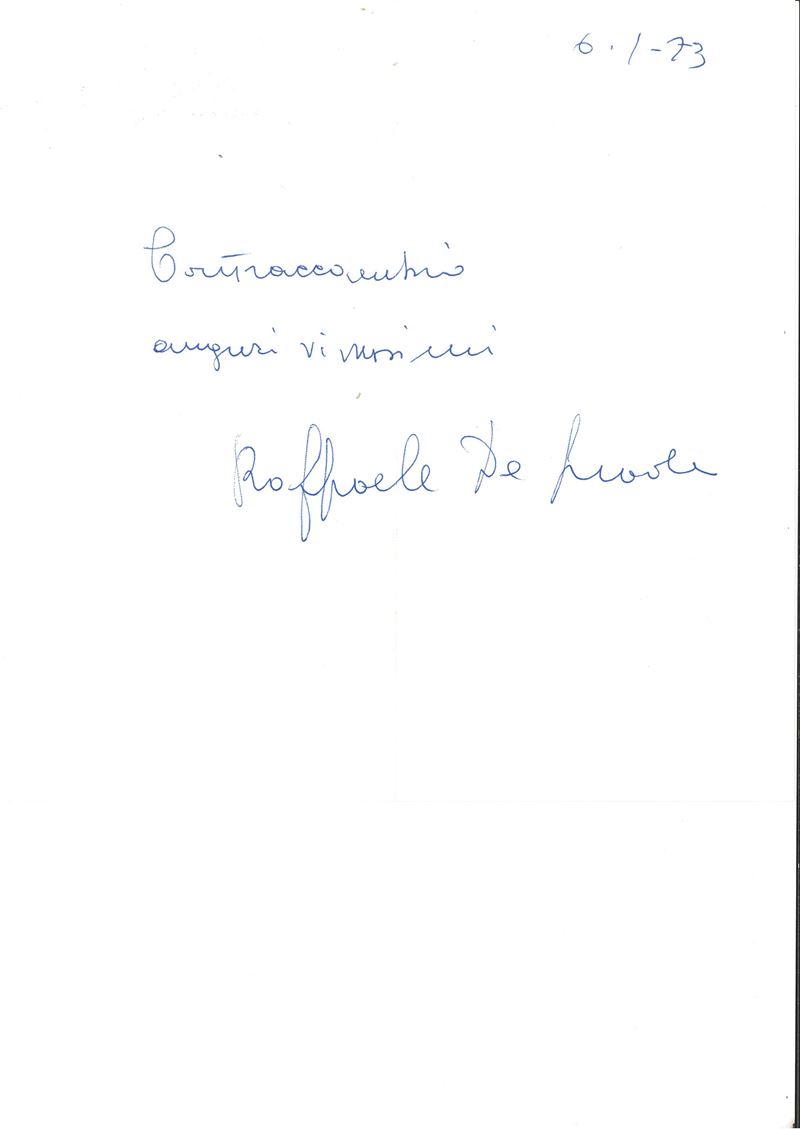 6.1-73
Contraccambio
auguri vivissimi
Raffaele De